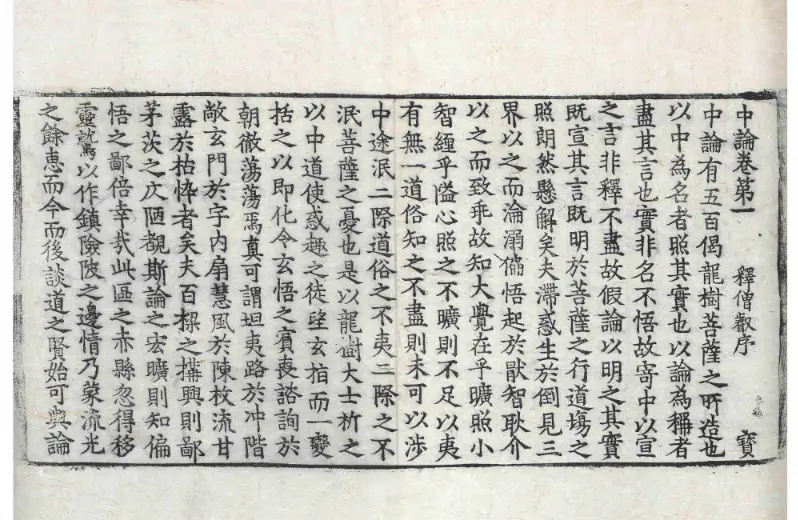 中論卷第一 釋僧叡序 寶
中論有五百偈龍樹菩薩之所造也
以中為名者照其實也以論為稱者
盡其言也實非名不悟故寄中以宣
之言非釋不盡故假論以明之其實
既宣其言既明於菩薩之行道塲之
照朗然懸解矣夫滯惑生於倒見三
界以之而淪溺偏悟起於猒智耿介
以之而致乖故知大覺在乎曠照小
智纏乎隘心照之不曠則不足以夷
有無一道俗知之不盡則未可以涉
中途泯二際道俗之不夷二際之不
泯菩薩之憂也是以龍樹大士析之
以中道使惑趣之徒望玄指而一變
括之以即化令玄悟之賓喪諮詢於
朝徹蕩蕩焉真可謂坦夷路於冲階
敞玄門於字內扇慧風於陳枚流甘
露於枯悴者矣夫百樑之搆興則鄙
茅茨之仄陋覩斯論之宏曠則知偏
悟之鄙倍幸哉此區之赤縣忽得移
靈鷲以作鎮險陂之邊情乃蒙流光
之餘惠而今而後談道之賢始可與論